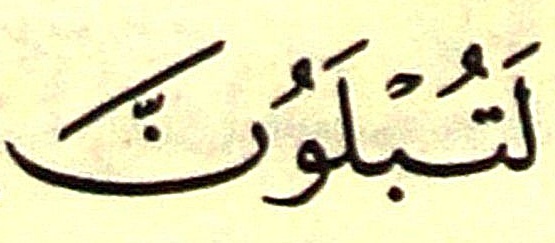 لَتُبْلَوُنَّ